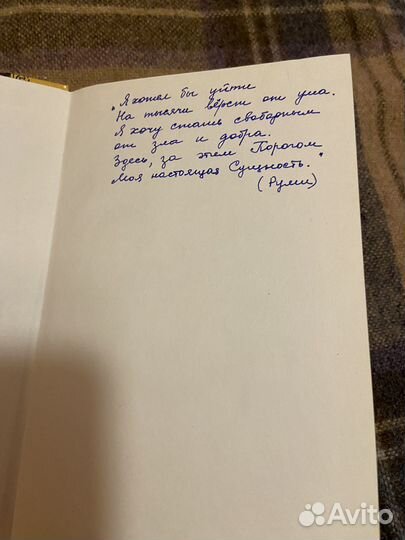 "Я хотел бы уйти
На тысячи вёрст от ума.
Я хочу стать свободным
от зла и добра.
Здесь, за этим Порогом
Моя настоящая Сущность."
(Руми)
Avito